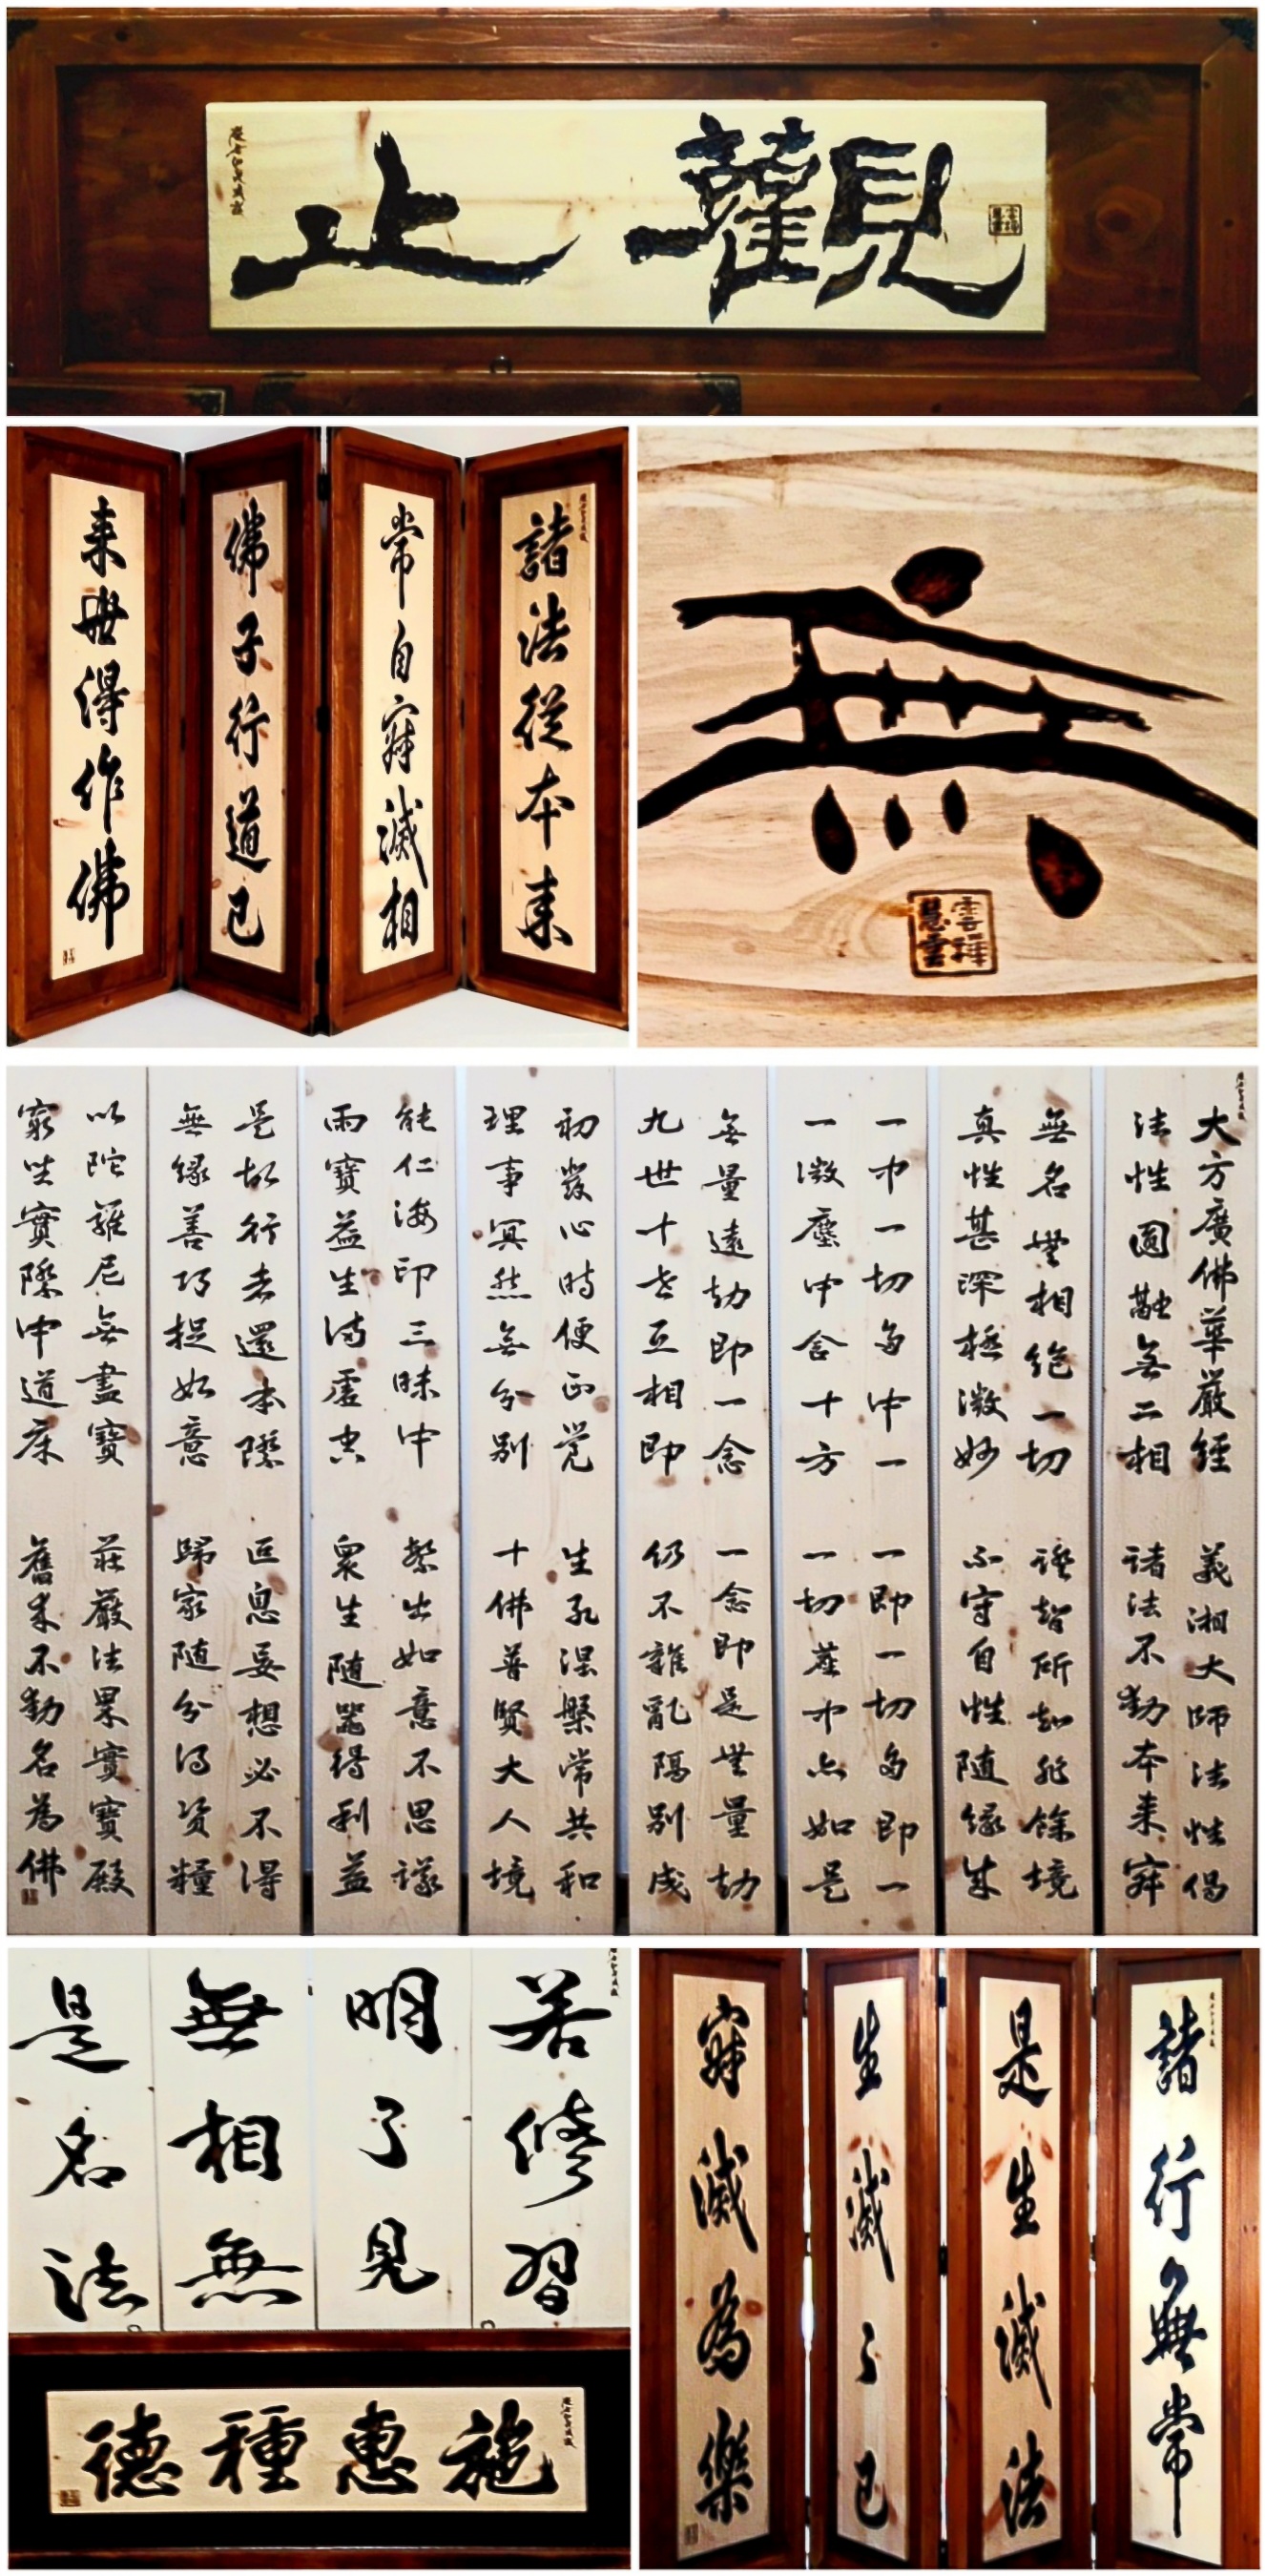 止觀
諸法從本來
常自寂滅相
佛子行道已
来世得作佛
無
大方廣佛華嚴經 義湘大師法性偈
法性圓融無二相 諸法不動本来寂
無名無相絶一切 證智所知非餘境
真性甚深極微妙 不守自性随緣成
一中一切多中一 一即一切多即一
一微塵中含十方 一切塵中亦如是
無量遠劫即一念 一念即是無量劫
九世十世互相即 仍不雜亂隔別成
初發心時便正覺 生死涅槃常共和
理事冥然無分別 十佛普賢大人境
能仁海印三昧中 繁出如意不思議
雨寶益生滿虛空 眾生随器得利益
是故行者還本際 叵息妄想必不得
無緣善巧捉如意 歸家随分得資糧
以陀羅尼無盡寶 莊嚴法界實寶殿
窮坐實際中道床 舊来不動名為佛
若修習
明了見
無相無
是名法
諸行無常
是生滅法
生滅了已
寂滅為樂
施惠種德